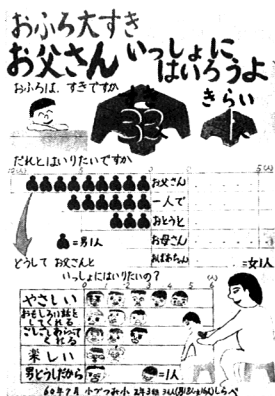 おふろ大すき
お父さん いっしょに
はいろうよ
おふろは、すきですか
きらい
33
だれとはいりたいですか
10(人) 5 0 5(人)
お父さん
一人で
おとうと
お母さん
おばあちゃん
=男1人
=女1人
どうして お父さんと
いっしょにはいりたいの?
0 1 2 3 4 5 6(人)
やさしい
おもしろい話を
してくれる
ごしごしあらって
くれる
楽しい
男どうしだから
=1人
60年7月
2年3組
しらべ